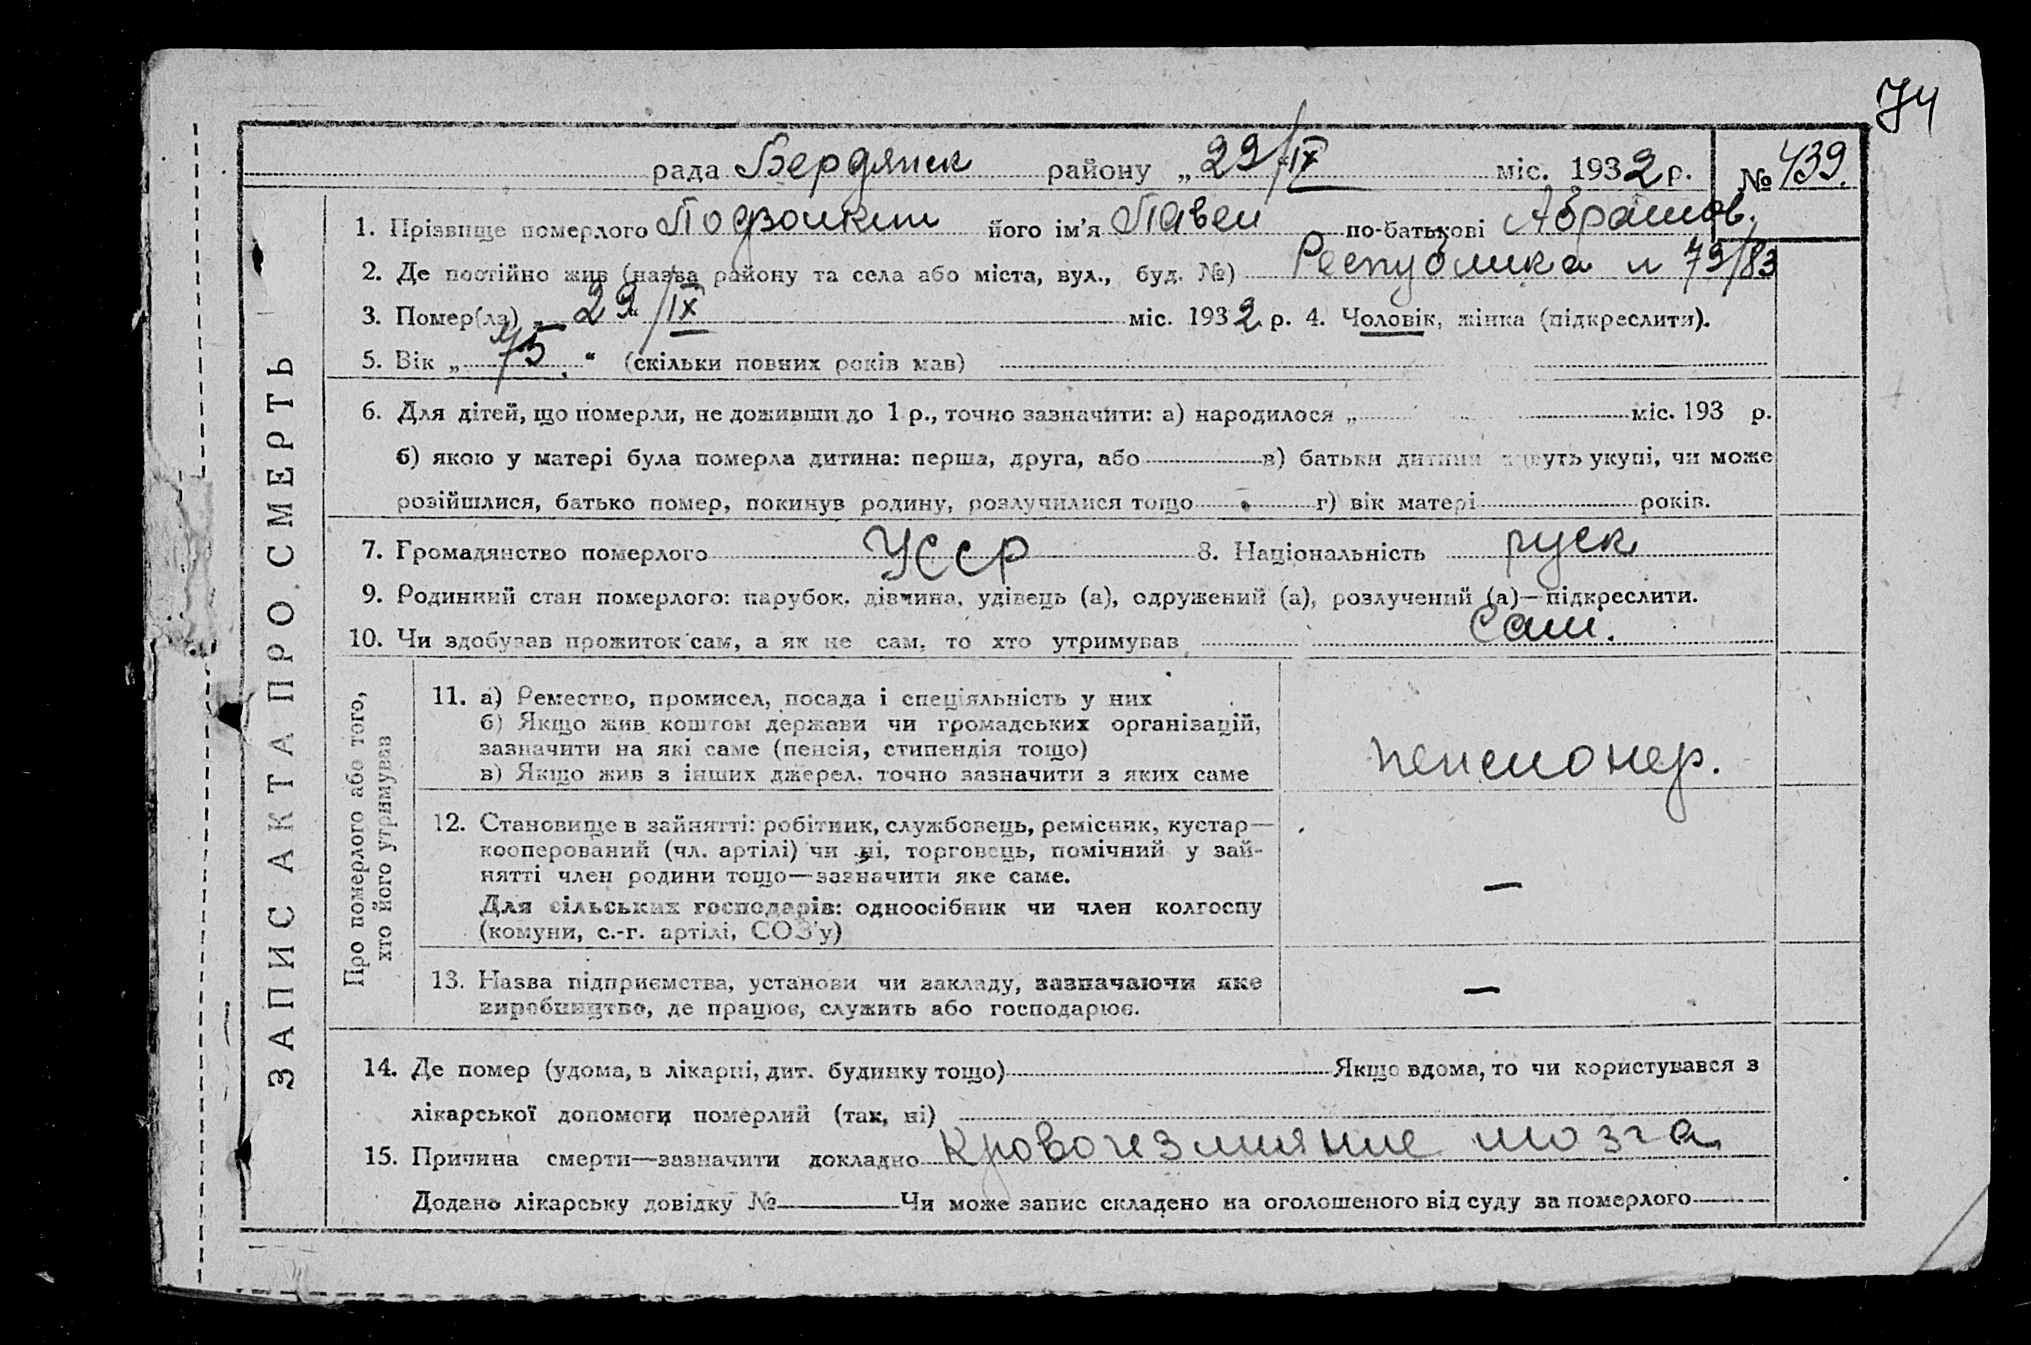 74
рада Бердянск району „ 29/IX міс. 1932 р. № 439.
ЗАПИС АКТА ПРО СМЕРТЬ
1. Прізвище померлого його ім'я Павел по-батькові Абрамов.
2. Де постійно жив (назва району та села або міста, вул., буд. №) Республика 79/83
3. Помер(ла) „ 29/IX міс. 1932 р. 4. Чоловік, жінка (підкреслити).
5. Вік „ 75 “ (скільки повних років мав)
6. Для дітей, що померли, не доживши до 1 р., точно зазначити: а) народилося „ міс. 193 р.
б) якою у матері була померла дитина: перша, друга, або в) батьки дитини живуть укупі, чи може
розійшлися, батько помер, покинув родину, розлучилися тощо г) вік матері років.
7. Громадянство померлого УССР 8. Національність руск
9. Родинний стан померлого: парубок, дівчина, удівець (а), одружений (а), розлучений (а)—підкреслити.
10. Чи здобував прожиток сам, а як не сам, то хто утримував Сам.
Про померлого або того,
хто його утримував
11. а) Ремество, промисел, посада і спеціяльність у них
б) Якщо жив коштом держави чи громадських організацій,
зазначити на які саме (пенсія, стипендія тощо)
в) Якщо жив з інших джерел, точно зазначити з яких саме
пенсионер.
12. Становище в зайнятті: робітник, службовець, ремісник, кустар—
кооперований (чл. артілі) чи ні, торговець, помічний у зай-
нятті член родини тощо—зазначити яке саме.
Для сільських господарів: одноосібник чи член колгоспу
(комуни, с.-г. артілі, СОЗ'у)
—
13. Назва підприємства, установи чи закладу, зазначаючи яке
виробництво, де працює, служить або господарює.
—
14. Де помер (удома, в лікарні, дит. будинку тощо) Якщо вдома, то чи користувався з
лікарської допомоги померлий (так, ні)
15. Причина смерти—зазначити докладно Кровоизлияние мозга
Додано лікарську довідку № Чи може запис складено на оголошеного від суду за померлого